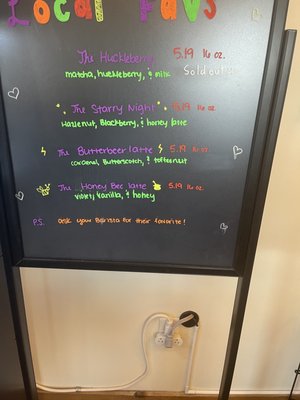 Local Favs
The Huckleberry 5.19 16 oz.
matcha, huckleberry, & milk Sold out
The Starry Night 5.19 16 oz.
Hazelnut, Blackberry, & honey latte
The Butterbeer latte 5.19 16 oz.
caramel, Butterscotch, & toffeenut
The Honey Bee latte 5.19 16 oz.
violet, vanilla, & honey
P.S. ask your Barista for their favorite!